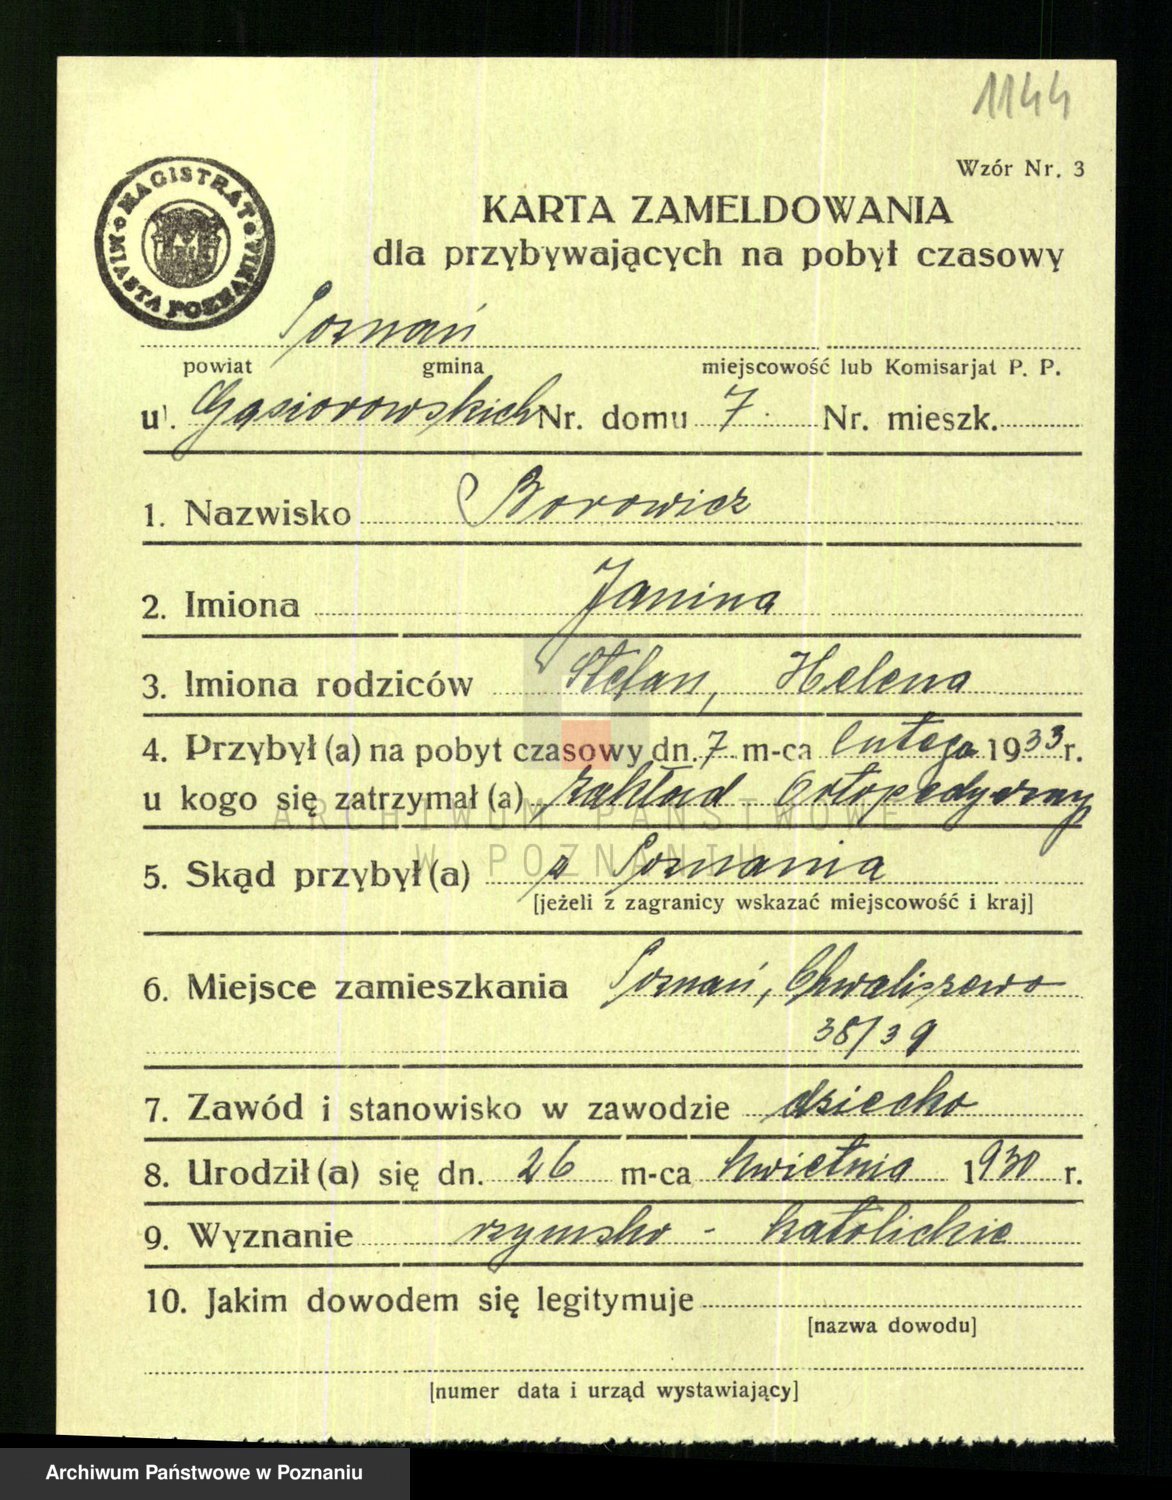 1144
Wzór Nr. 3
MAGISTRAT MIASTA POZNANIA
KARTA ZAMELDOWANIA
dla przybywających na pobyt czasowy
Poznań
powiat gmina miejscowość lub Komisarjat P. P.
ul. Gąsiorowskich Nr. domu 7. Nr. mieszk.
1. Nazwisko Borowicz
2. Imiona Janina
3. Imiona rodziców Stefan, Helena
4. Przybył (a) na pobyt czasowy dn. 7 m-ca lutego 1933 r.
u kogo się zatrzymał (a) Zakład Ortopedyczny
ARCHIWUM PAŃSTWOWE
W POZNANIU
5. Skąd przybył (a) z Poznania
[jeżeli z zagranicy wskazać miejscowość i kraj]
6. Miejsce zamieszkania Poznań, Chwaliszewo
38/39
7. Zawód i stanowisko w zawodzie dziecko
8. Urodził (a) się dn. 26 m-ca kwietnia 1930 r.
9. Wyznanie rzymsko - katolickie
10. Jakim dowodem się legitymuje
[nazwa dowodu]
[numer data i urząd wystawiający]
Archiwum Państwowe w Poznaniu